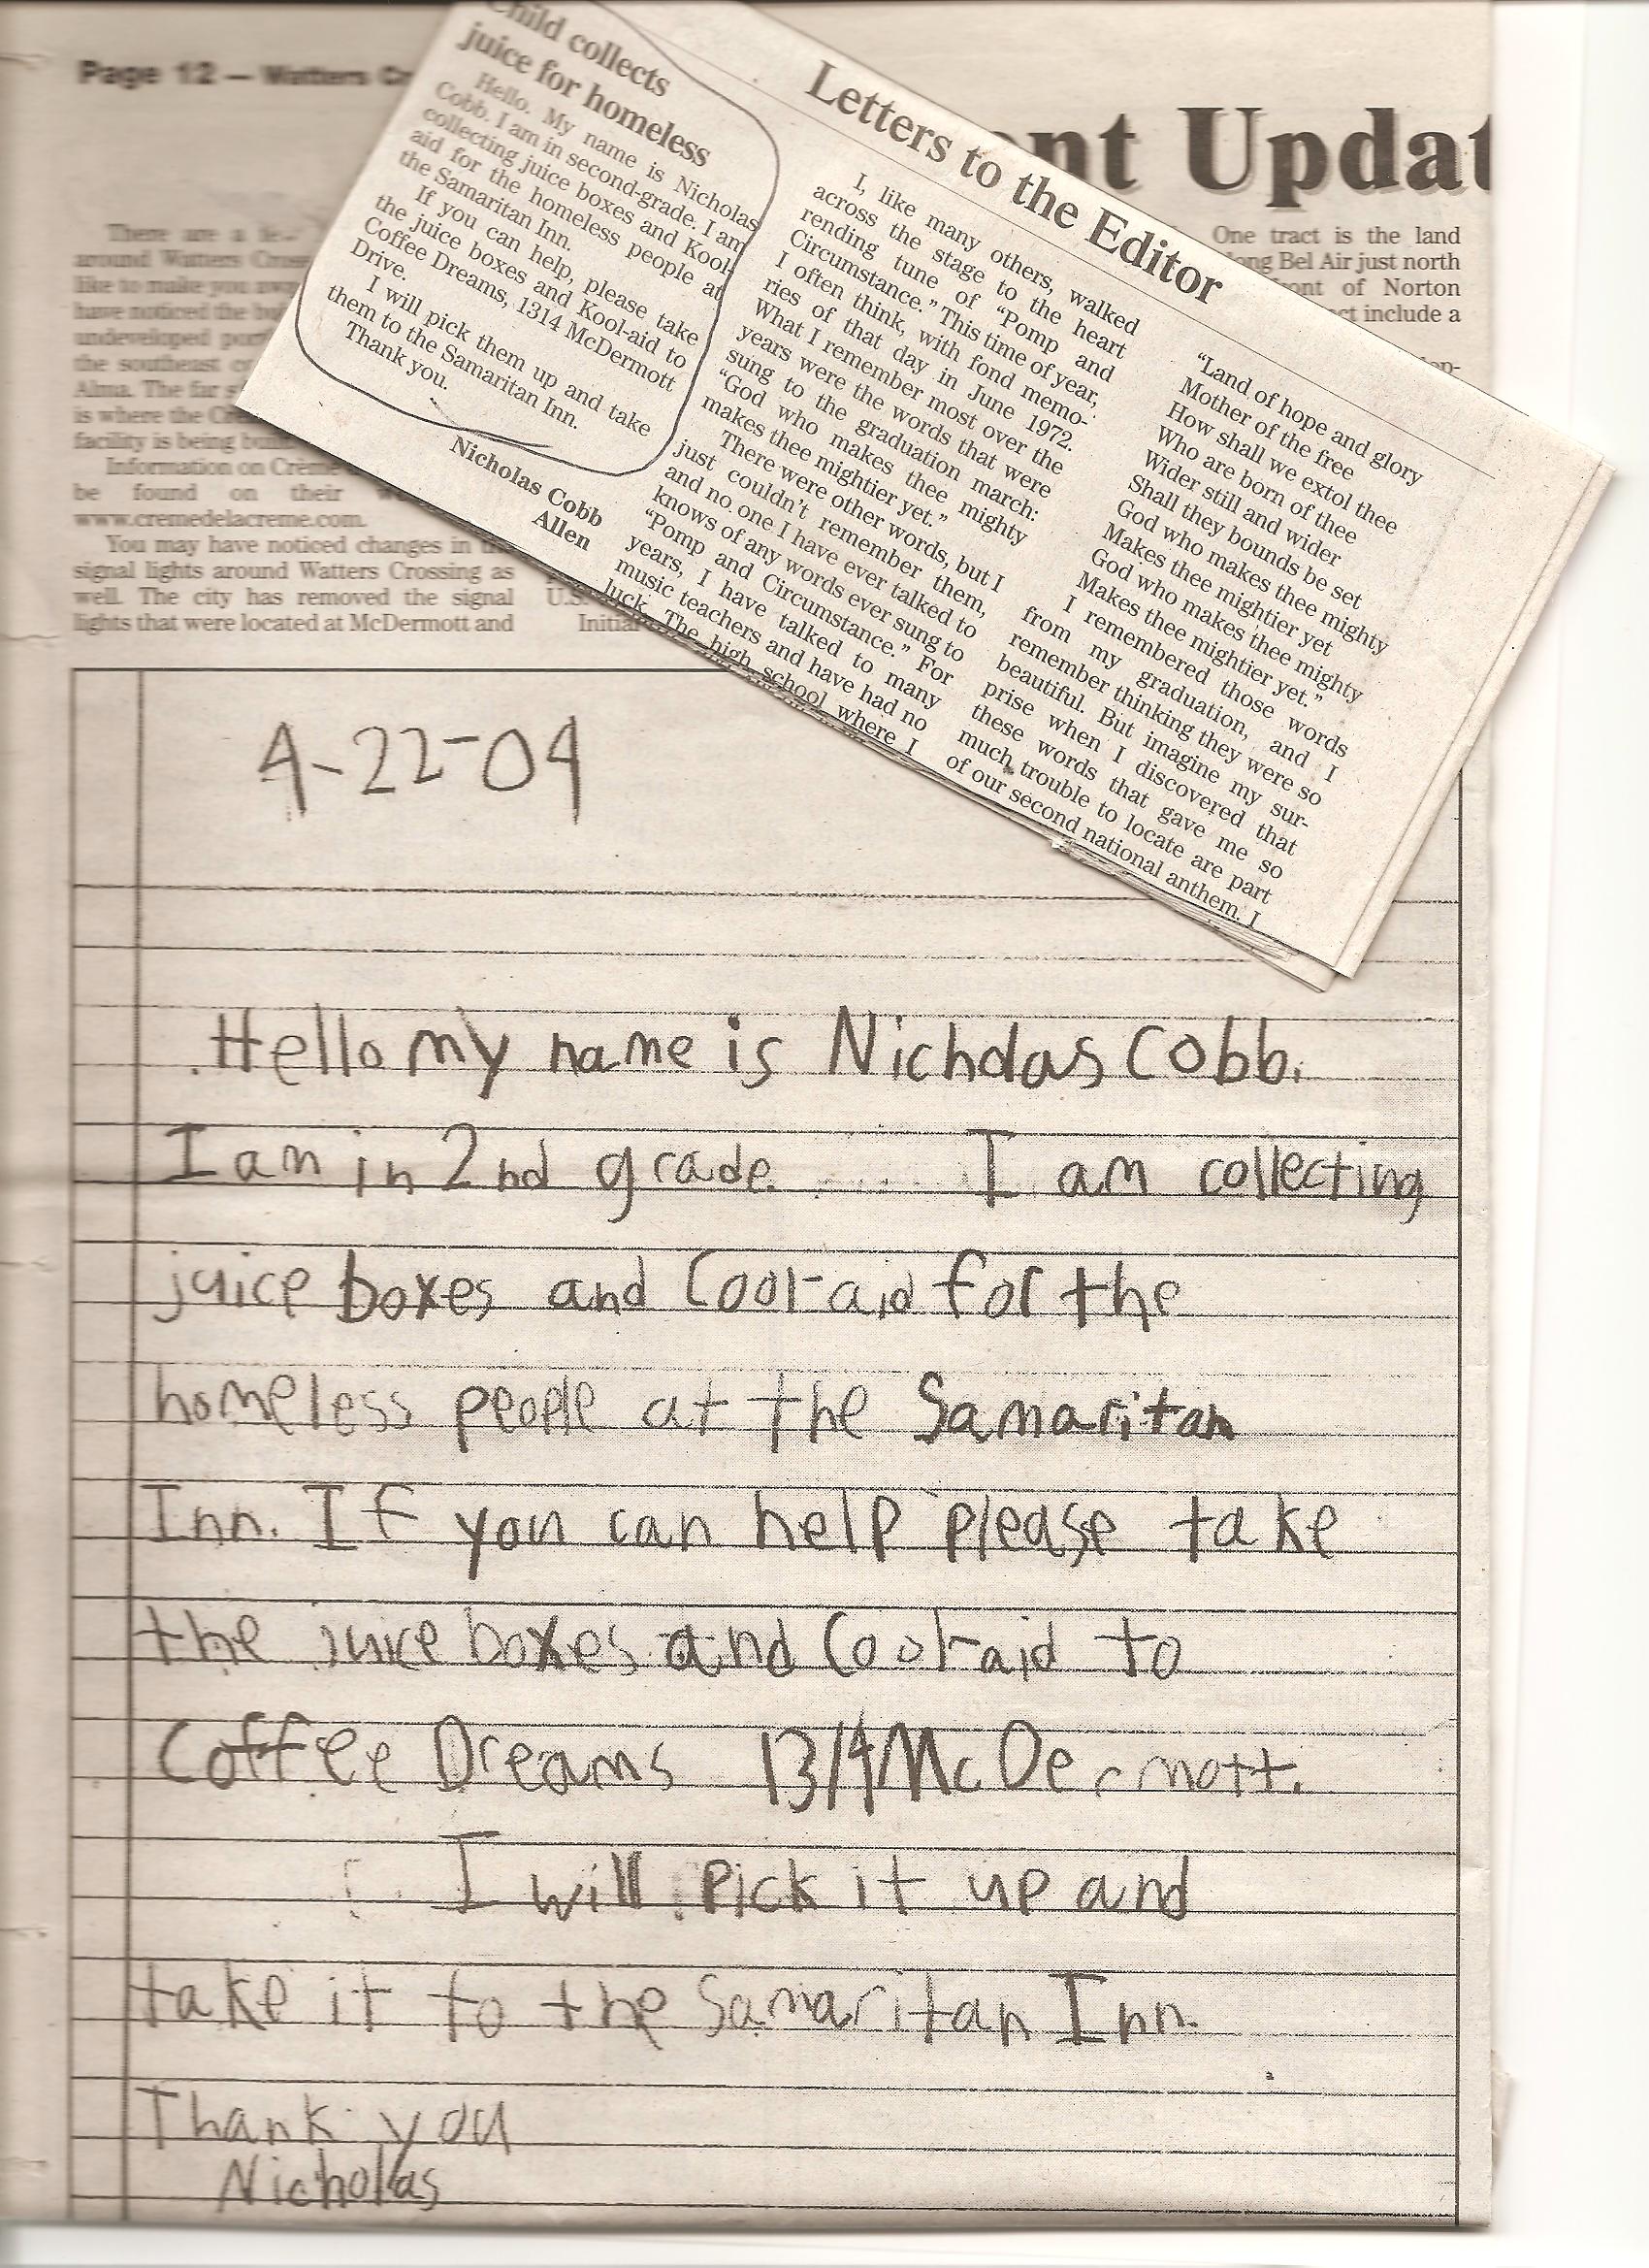 Page 12 — Watters
nt Updat
There are a
around Watters
like to make you
have noticed the
undeveloped
the southeast
Alma. The far
is where the
facility is being
Information on Crème
be found on their
www.cremedelacreme.com.
You may have noticed changes in
signal lights around Watters Crossing as
well. The city has removed the signal
lights that were located at McDermott and
U.S.
Initial
One tract is the land
long Bel Air just north
front of Norton
include a
Child collects
juice for homeless
Hello. My name is Nicholas
Cobb. I am in second-grade. I am
collecting juice boxes and Kool-
aid for the homeless people at
the Samaritan Inn.
If you can help, please take
the juice boxes and Kool-aid to
Coffee Dreams, 1314 McDermott
Drive.
I will pick them up and take
them to the Samaritan Inn.
Thank you.
Nicholas Cobb
Allen
Letters to the Editor
I, like many others, walked
across the stage to the heart
rending tune of “Pomp and
Circumstance.” This time of year,
I often think, with fond memo-
ries of that day in June 1972.
What I remember most over the
years were the words that were
sung to the graduation march:
“God who makes thee mighty
makes thee mightier yet.”
There were other words, but I
just couldn’t remember them,
and no one I have ever talked to
knows of any words ever sung to
“Pomp and Circumstance.” For
years, I have talked to many
music teachers and have had no
luck. The high school where I
“Land of hope and glory
Mother of the free
How shall we extol thee
Who are born of thee
Wider still and wider
Shall they bounds be set
God who makes thee mighty
Makes thee mightier yet
God who makes thee mighty
Makes thee mightier yet.”
I remembered those words
from my graduation, and I
remember thinking they were so
beautiful. But imagine my sur-
prise when I discovered that
these words that gave me so
much trouble to locate are part
of our second national anthem. I
4-22-04
Hello my name is Nicholas Cobb.
I am in 2nd grade. I am collecting
juice boxes and Cool-aid for the
homeless people at the Samaritan
Inn. If you can help please take
the juice boxes and Cool-aid to
Coffee Dreams 1314 McDermott.
I will pick it up and
take it to the Samaritan Inn.
Thank you
Nicholas